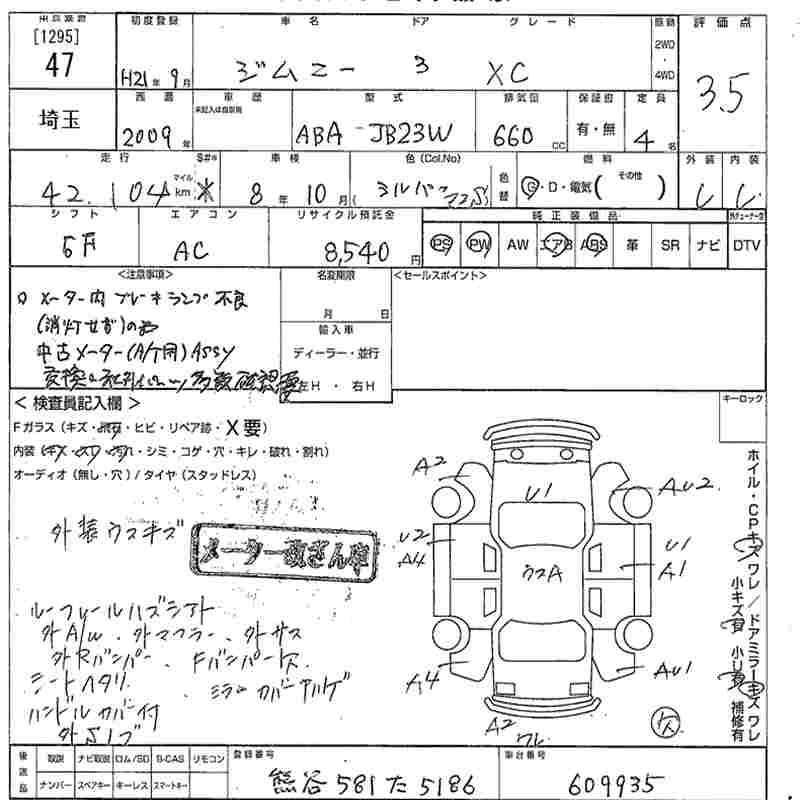 [1295]
47
初度登録
車名
ドア
グレード
駆動
評価点
H21年9月
ジムニー
3
XC
2WD
・
4WD
3.5
埼玉
西暦
車歴
型式
排気量
保証書
定員
2009年
未記入は自家用
ABA-JB23W
660cc
有・無
4名
走行
車検
色(Col.No)
燃料
外装
内装
42,104
マイル
km
8年10月
シルバー
色替
G・D・電気(その他)
シフト
エアコン
リサイクル預託金
純正装備品
5F
AC
8,540円
PS
PW
AW
エアB
ABS
革
SR
ナビ
DTV
<注意事項>
名変期限
<セールスポイント>
メーター内ブレーキランプ不良
月 日
(消灯せず)の為
輸入車
中古メーター(A/T用)ASSY
ディーラー・並行
左H・右H
<検査員記入欄>
キーロック
Fガラス(キズ・・ヒビ・リペア跡・X要)
内装(キズ・スリ・汚れ・シミ・コゲ・穴・キレ・破れ・割れ)
オーディオ(無し・穴)/タイヤ(スタッドレス)
外装ウスキズ
メーター改ざん車
ルーフレールハズシアト
外A/W・外マフラー、外サス
外Rバンパー、Fバンパー欠
シートヘタリ、ミラーカバー
ハンドルカバー付
外
A2
U1
AU2
U2
A4
ウスA
U1
A1
A4
AU1
A2
ワレ
欠
ホイル・CPキズワレ/ドアミラーキズワレ
小キズ有 小U有 補修有
後送品
取説
ナビ取説
ロム/SD
B-CAS
リモコン
登録番号
車台番号
ナンバー
スペアキー
キーレス
スマートキー
熊谷581た5186
609935